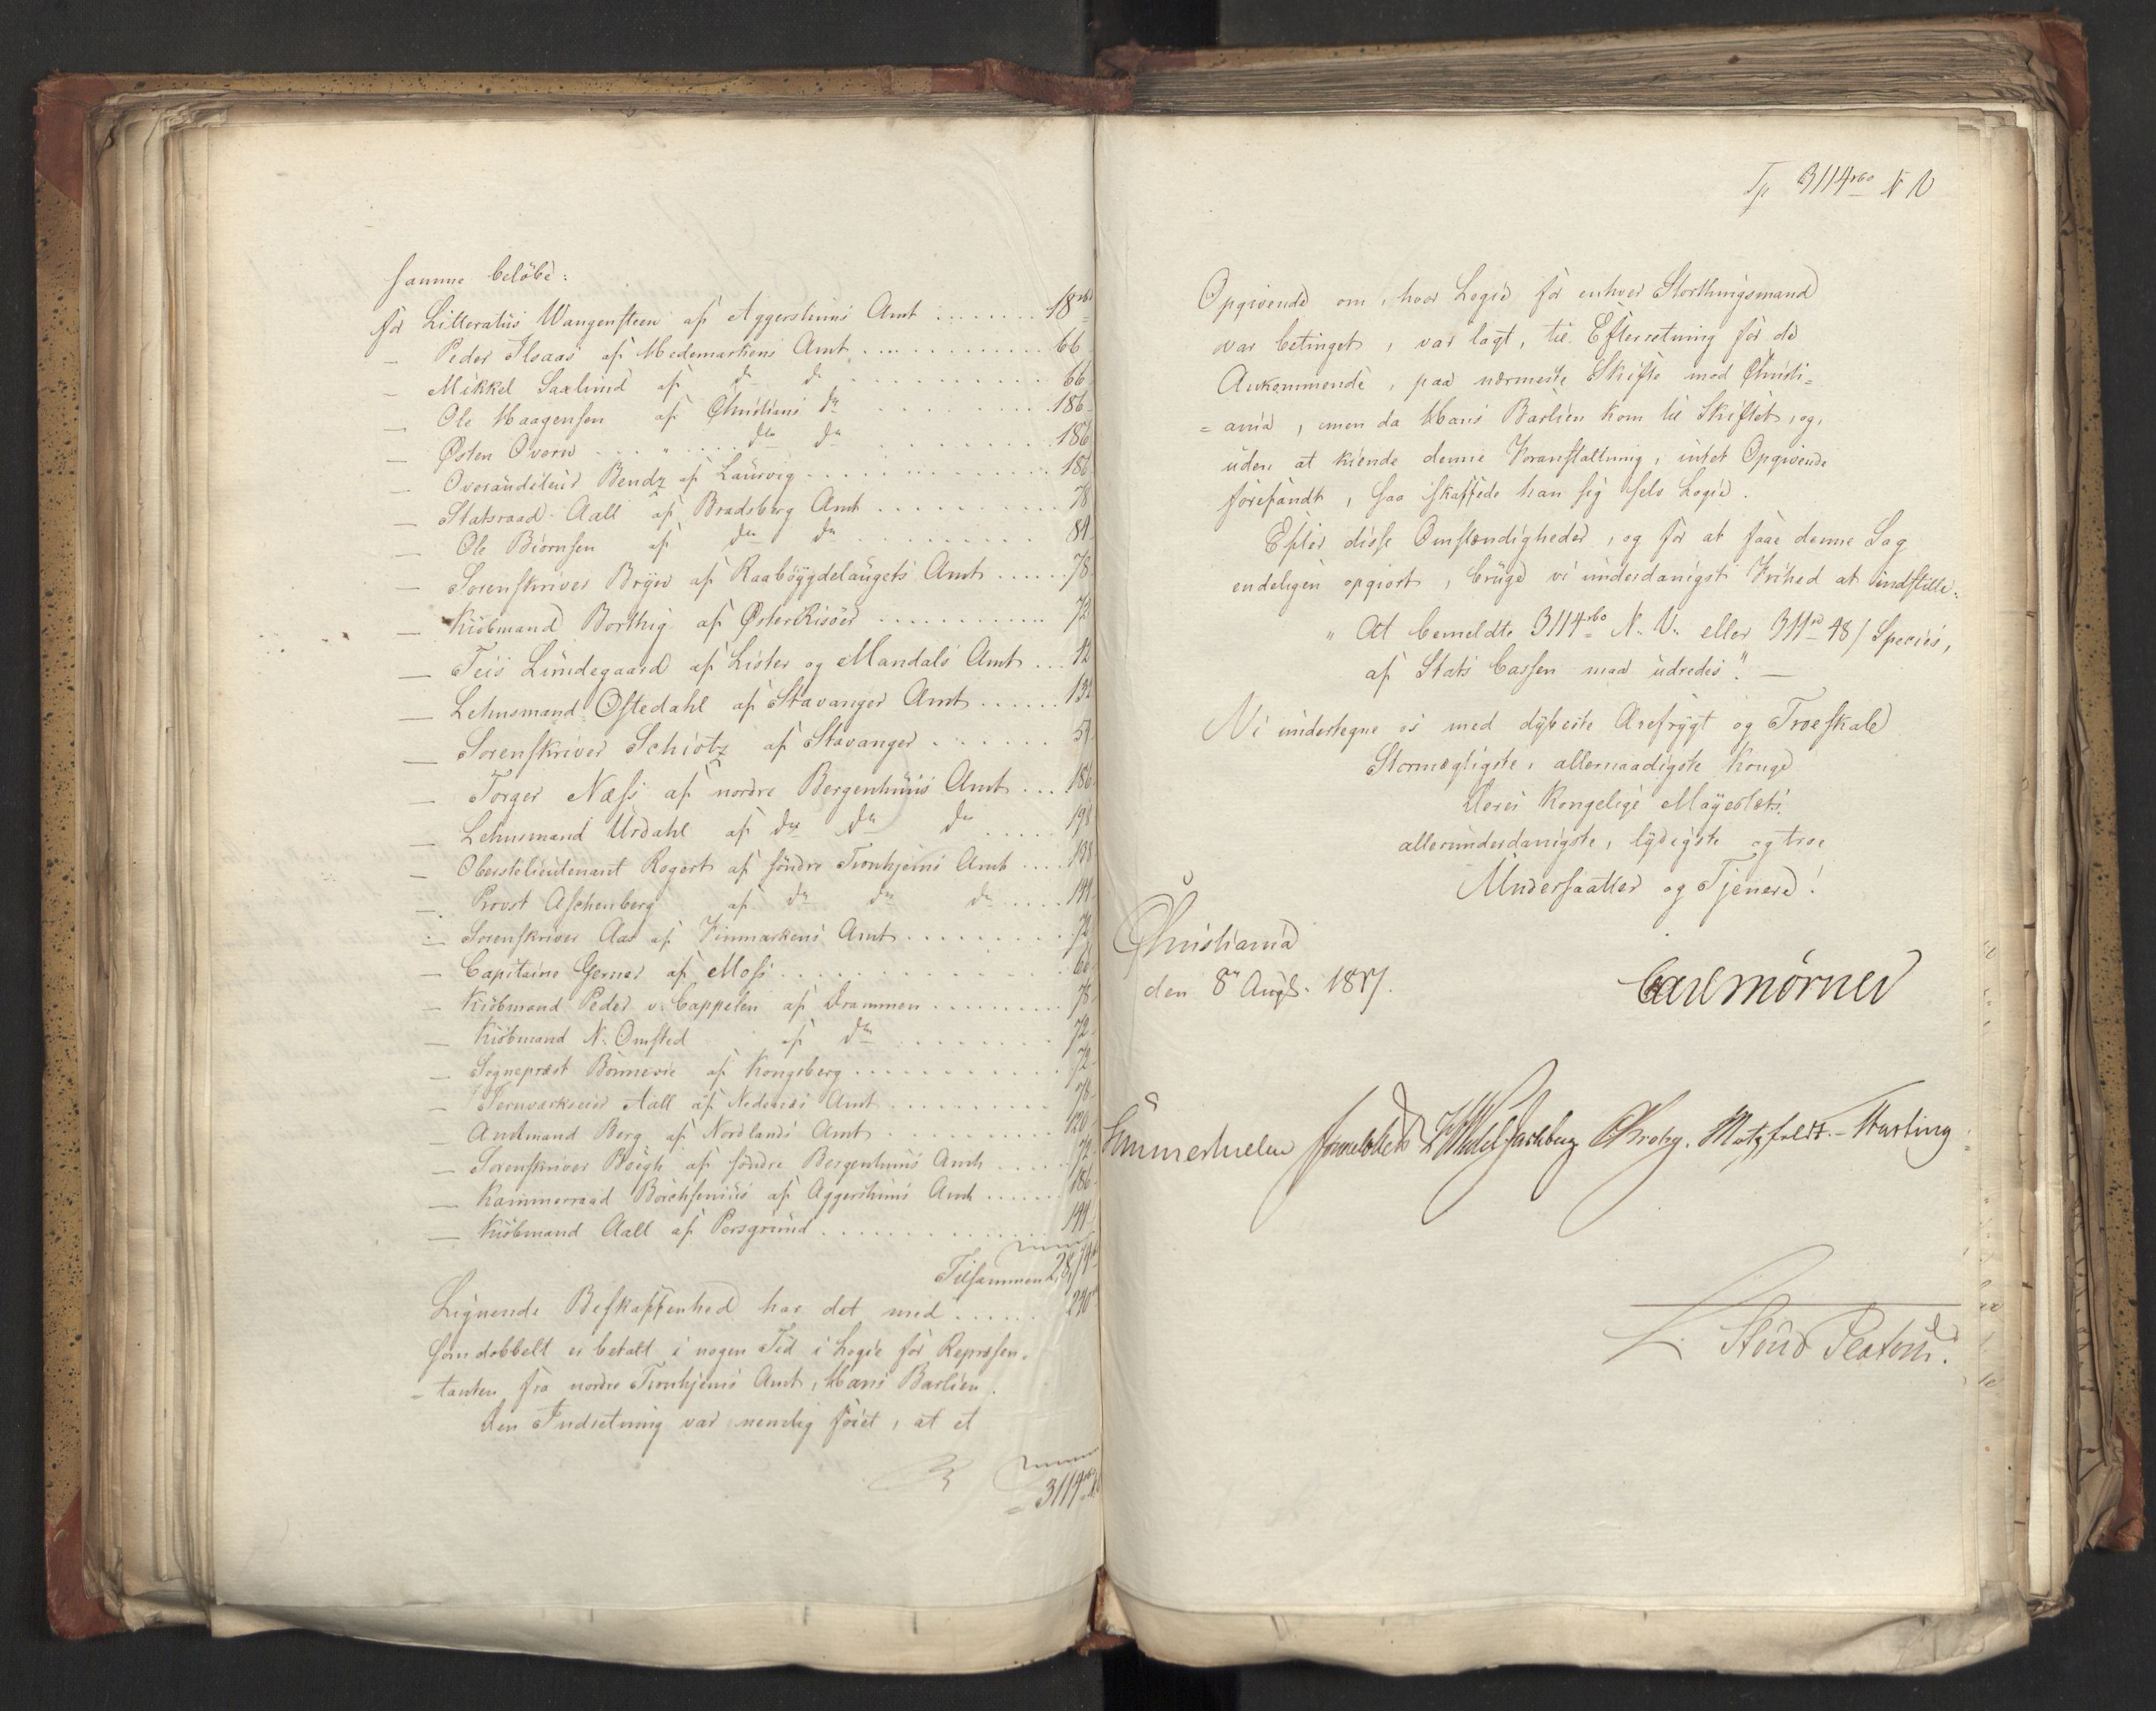 samme belöbe:
for Litteratus Wangensteen af Aggershuus Amt ........ 18rbd
— Peder Ilsaas af Hedemarkens Amt ............ 66
— Mikkel Saxlund af do do .......... 66
— Ole Haagensen af Christians do .......... 186
— Østen Överu ... " ... do do .......... 186
— Overauditeur Bendz af Laurvig ............ 186
— Statsraad Aall af Bradsberg Amt .......... 78
— Ole Biörnsen af do do .......... 84
— Sorenskriver Bryn af Raaböygdelaugets Amt ...... 78
— Kiöbmand Borthig af ØsterRisöer .......... 72
— Teis Lundegaard af Lister og Mandals Amt ... 12
— Lehnsmand Ostedahl af Stavanger Amt ...... 132
— Sorenskriver Schiötz af Stavanger ....... 54
— Torger Næss af nordre Bergenhuus Amt ... 186
— Lehnsmand Urdahl af do do do ..... 198
— Oberstelieutenant Rogert af söndre Tronhjems Amt .... 138
— Provst Aschenberg af do do do ..... 144
— Sorenskriver Aas af Finmarkens Amt ......... 72
— Capitaine Gerner af Moss ............. 66
— Kiöbmand Peder v. Cappelen af Drammen ......... 78
— Kiöbmand N. Omsted af do ........ 72
— Sognepræst Bonnevie af Kongsberg ........... 72
— Jernværkseier Aall af Nedenæs Amt .......... 78
— Amtmand Berg af Nordlands Amt .......... 120
— Sorenskriver Koren af söndre Bergenhuus Amt ...... 72
— Kammerraad Borchsenius af Aggershuus Amt ....... 186
— Kiöbmand Aall af Porsgrund ............ 144
Tilsammen 2874
Lignende Beskaffenhed har det med ...... 240
som dobbelt er betalt i nogen Tid i Logie for Repræsen-
-tanten fra nordre Tronhjems Amt, Hans Barlien.
Den Indretning var nemlig föiet, at et
3114rbd
Tp 3114rbd N V
Opgivende om, hvor Logie for enhver Storthingsmand
var betinget, var lagt, til Efterretning for de
Ankommende, paa nærmeste Skifte med Christi=
=ania, men da Hans Barlien kom til Skiftet, og,
uden at kiende denne Foranstaltning, intet Opgivende
forefandt, saa skaffede han sig selv Logie.
Efter disse Omstændigheder, og for at faae denne Sag
endeligen opgiort, bruge vi underdanigst Frihed at indstille:
"At bemeldte 3114rbd N. V. eller 311sp 48/ Species,
af Stats Cassen maa udredes". —
Vi undertegne os med dybeste Ærefrygt og Troeskab
Stormægtigste, allernaadigste Konge
Deres Kongelige Mayestæts
allerunderdanigste, lydigste og troe
Undersaatter og Tjenere!
Christiania
den 8de Augt. 1817.
Carl Mörner
Sommerhielm Jonas Collett HWedel Jarlsberg CKrohg. Motzfeldt.- Hasting
L. Stoud Platou.